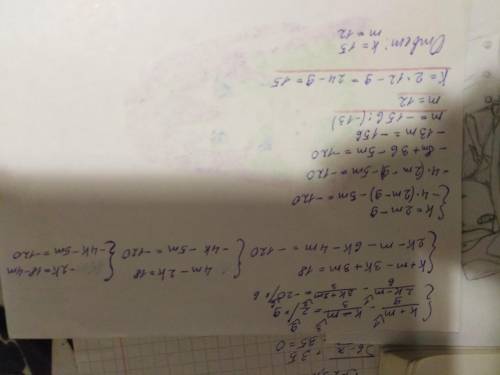 k+m/9 - k-m/3 = 2 /·9
k+m-3k+3m = 18
2k-m-6k-4m = -120
4m-2k=18
-4k-5m=-120
-2k=18-4m
-4k-5m=-120
k=2m-9
-4·(2m-9)-5m=-120
-4·(2m-9)-5m=-120
-8m+36-5m=-120
-13m=-156
m=-156:(-13)
m=12
k=2·12-9=24-9=15
Ответ: k=15
m=12